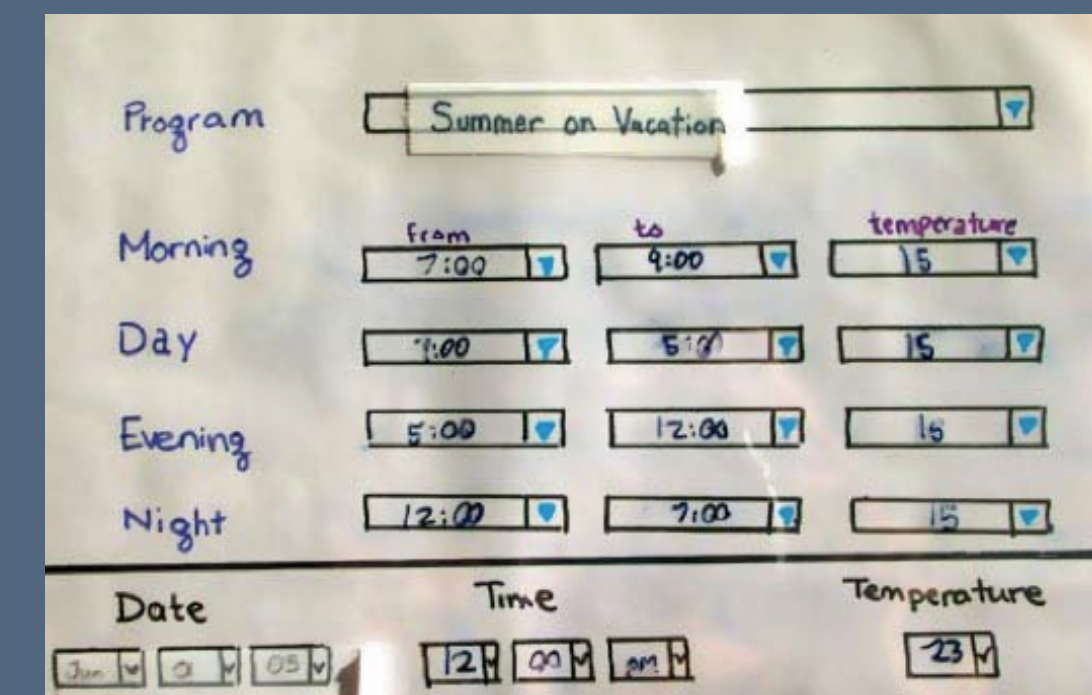 Program Summer on Vacation
from to temperature
Morning 7:00 9:00 15
Day 9:00 5:00 15
Evening 5:00 12:00 15
Night 12:00 7:00 15
Date Time Temperature
Jun 05 12 00 pm 23